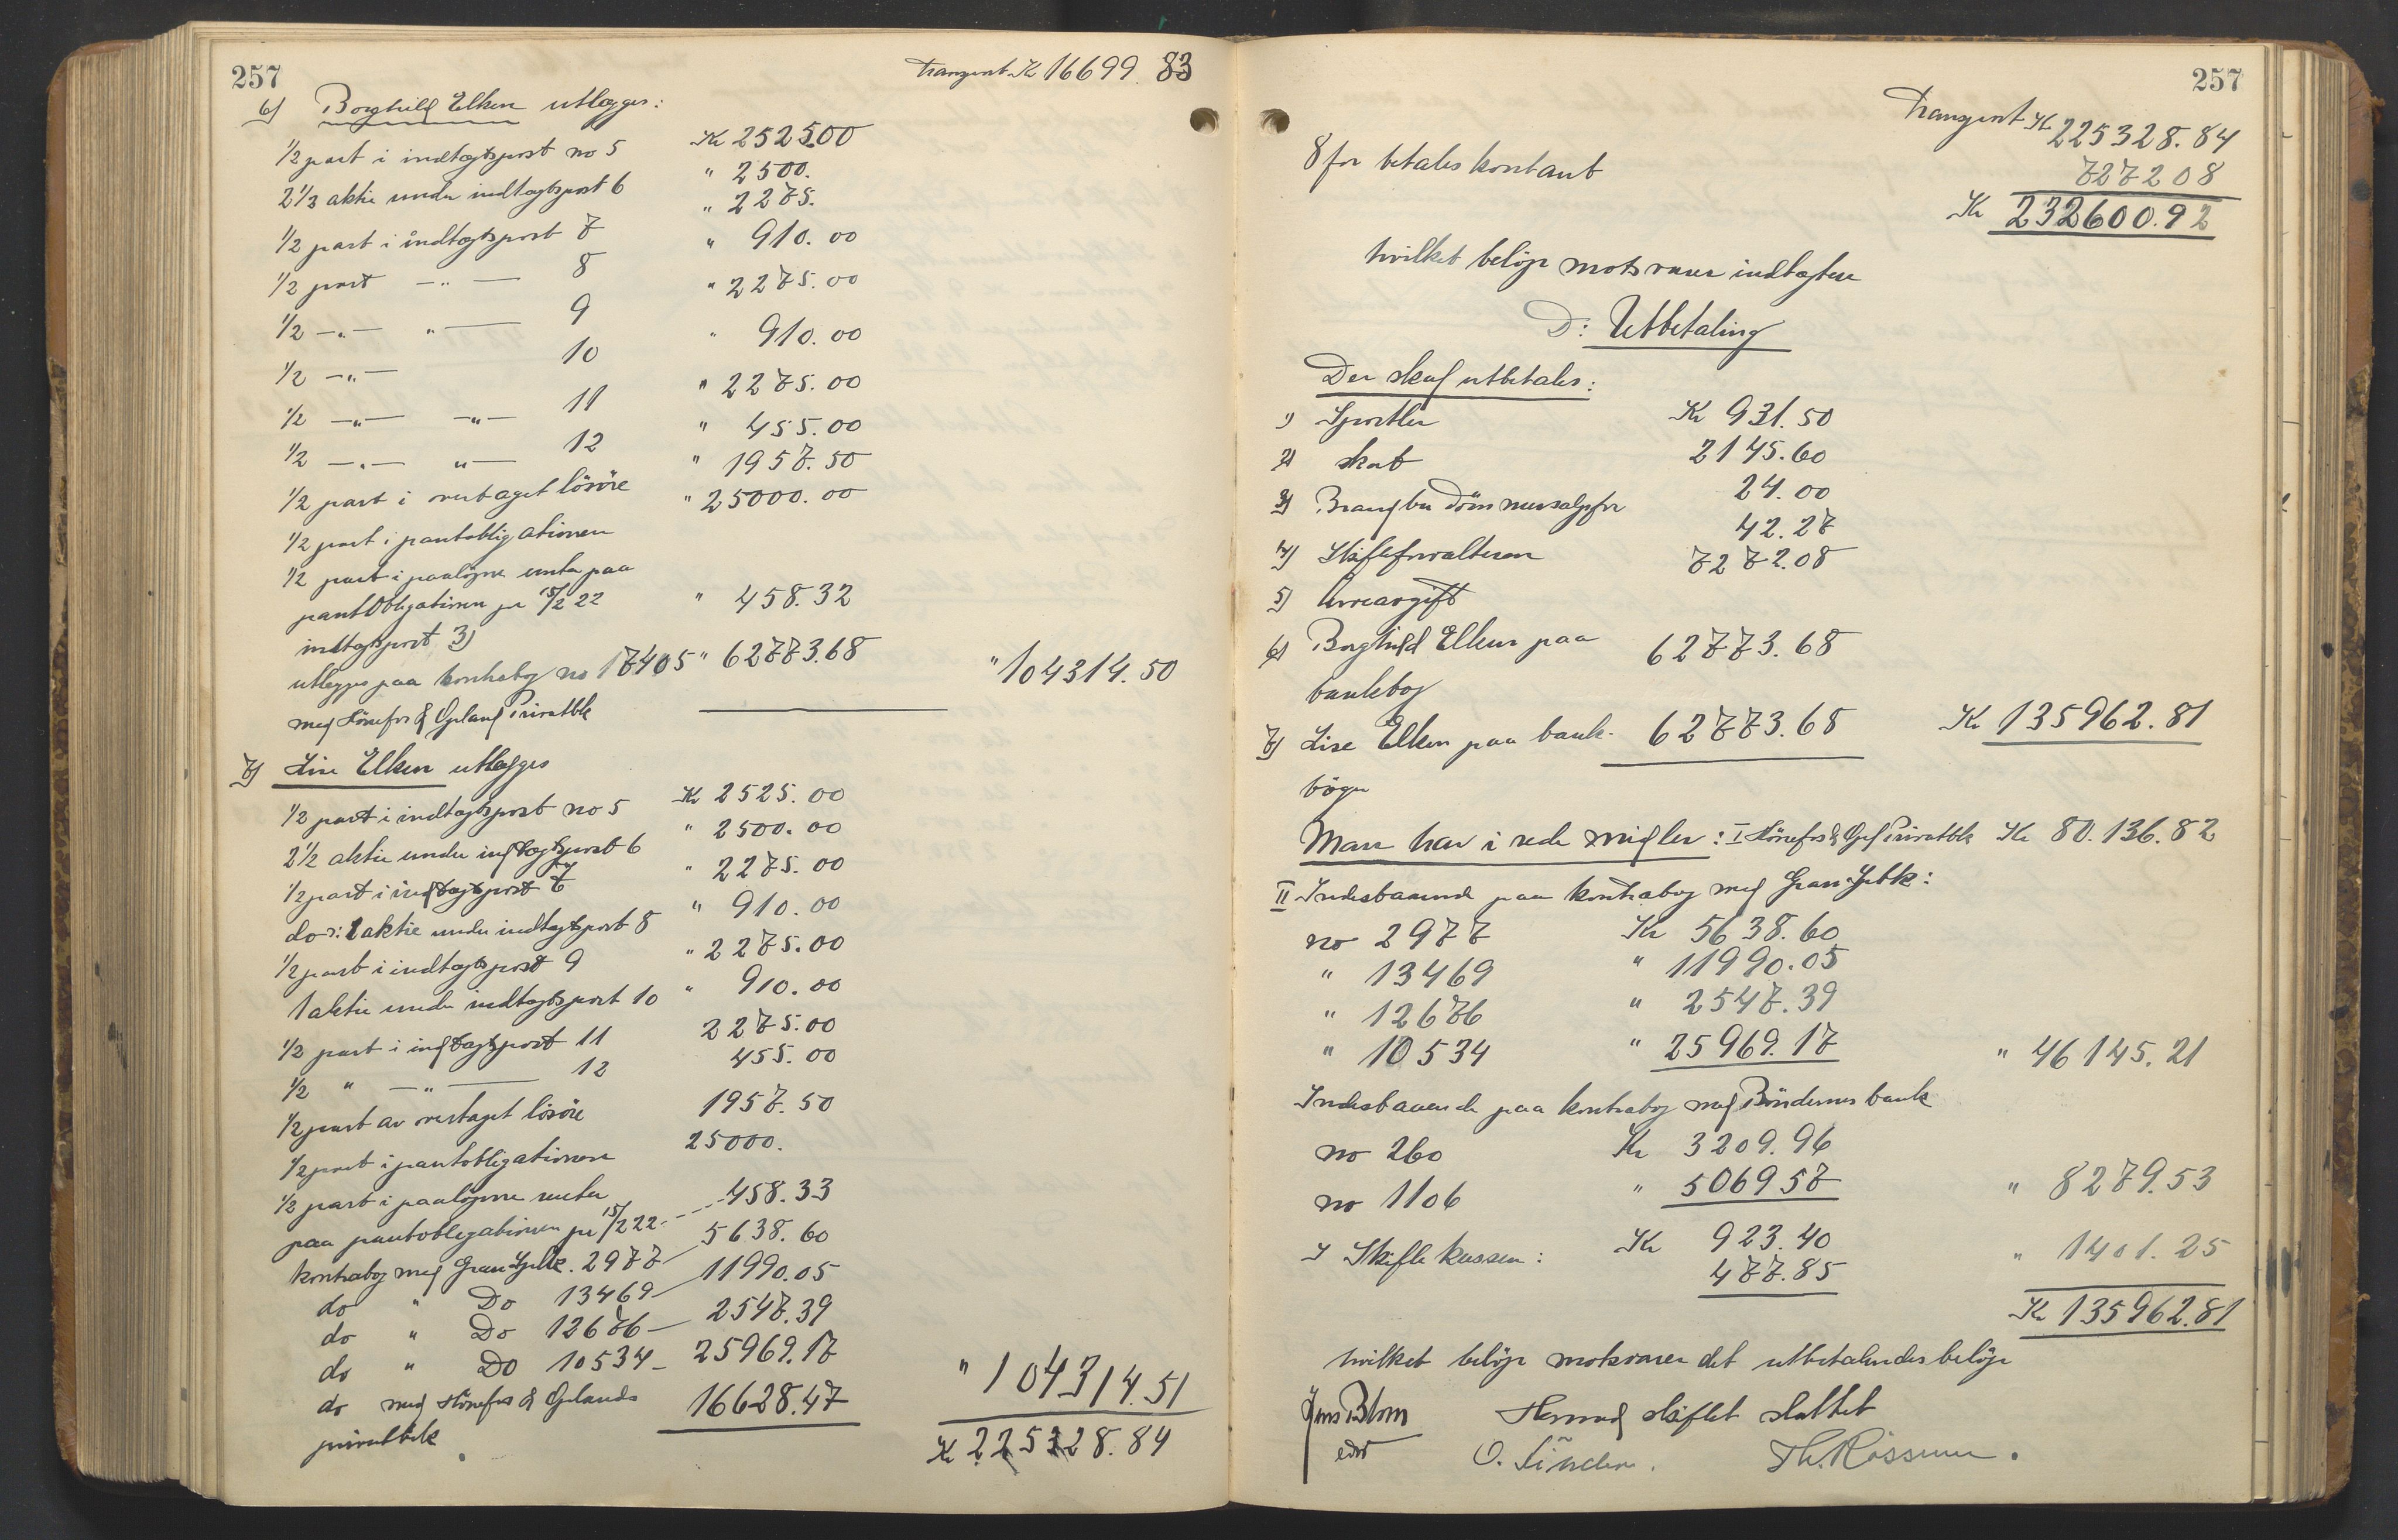 257
Transport Kr 16699. 83
6) Borghild Elken utlægges:
1/2 part i indtægtspost no 5 Kr 2525.00
2 1/2 aktie under indtægtspost 6 " 2500.
1/2 part i indtægtspost 7 " 2275.
1/2 part —"— 8 " 910.00
1/2 —"— "— 9 " 2275.00
1/2 —"— 10 " 910.00
1/2 —"— —"— 11 " 2275.00
1/2 —"— "— 12 " 455.00
1/2 part i overtaget lösöre " 1957.50
1/2 part i pantobligationen " 25000.00
1/2 part i paalöpne renter paa
pantobligationen pr 15/2 22 " 458.32
indtægtspost 3)
utlegges paa kontrabog no 17405 " 62773.68 " 104314.50
med Hönefos & Opland Privatbk
7) Lise Elken utlægges
1/2 part i indtægtspost no 5 Kr 2525.00
2 1/2 aktie under indtægtspost 6 " 2500.00
1/2 part i indtægtspost 7 " 2275.00
do: 1 aktie under indtægtspost 8 " 910.00
1/2 part i indtægtspost 9 " 2275.00
1 aktie under indtægtspost 10 " 910.00
1/2 part i indtægtspost 11 2275.00
1/2 " —"— 12 455.00
1/2 part av overtaget lösöre 1957.50
1/2 part i pantobligationen 25000.
1/2 part i paalöpne renter
paa pantobligationen pr 15/2 22 458.33
kontrabog med Gran Spbk. 2977 5638.60
do " Do 13469 11990.05
do " Do 12676 2547.39
do " Do 10534 25969.17
do med Hönefos & Oplands 16628.47 " 104314.51
privatbk
Kr 225328.84
257
Transport Kr 225328.84
8 for betales kontant 727208
Kr 232600.92
hvilket belöp motsvarer indtægten
D: Utbetaling
Der skal utbetales:
1) Sportler Kr 931.50
2) skat 2145.60
3) 24.00
4) Skifteforvalteren 42.27
5) Arveavgift 7272.08
6) Borghild Elken paa 62773.68
bankbog
7) Lise Elken paa bank- 62773.68 Kr 135962.81
böger
Man har i rede midler: I Hönefos & Opl Privatbk Kr 80.136.82
II Indestaaende paa kontrabog med Gran Spbk:
no 2977 Kr 5638.60
" 13469 " 11990.05
" 12676 " 2547.39
" 10534 " 25969.17 " 46145.21
Indestaaende paa kontrabog med Böndernes bank
no 260 Kr 3209.96
no 1106 " 506957 " 8279.53
I Skiftekassen: Kr 923.40
477.85 " 1401.25
Kr 135962.81
hvilket belöp motsvarer det utbetalendes belöp
Jens Blom Hermed skiftet sluttet
O. Th. Rossum.